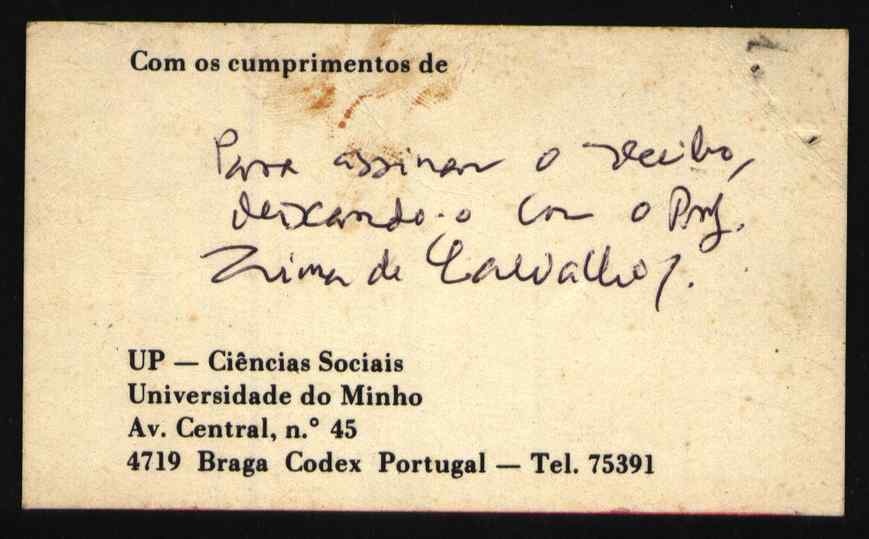 Com os cumprimentos de
Para assinar o recibo,
deixando-o com o Prof.
Lima de Carvalho.
UP — Ciências Sociais
Universidade do Minho
Av. Central, n.° 45
4719 Braga Codex Portugal — Tel. 75391